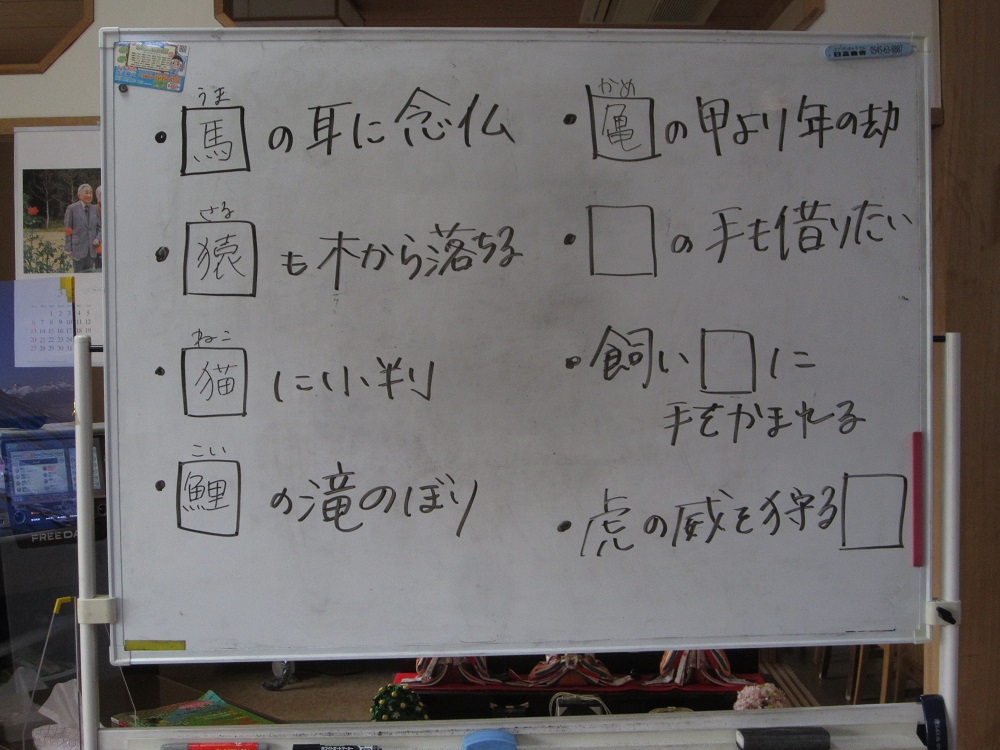 うま
・馬の耳に念仏
さる
・猿も木から落ちる
ねこ
・猫に小判
こい
・鯉の滝のぼり
かめ
・亀の甲より年の劫
・□の手も借りたい
・飼い□に
手をかまれる
・虎の威を狩る□
FREEDA